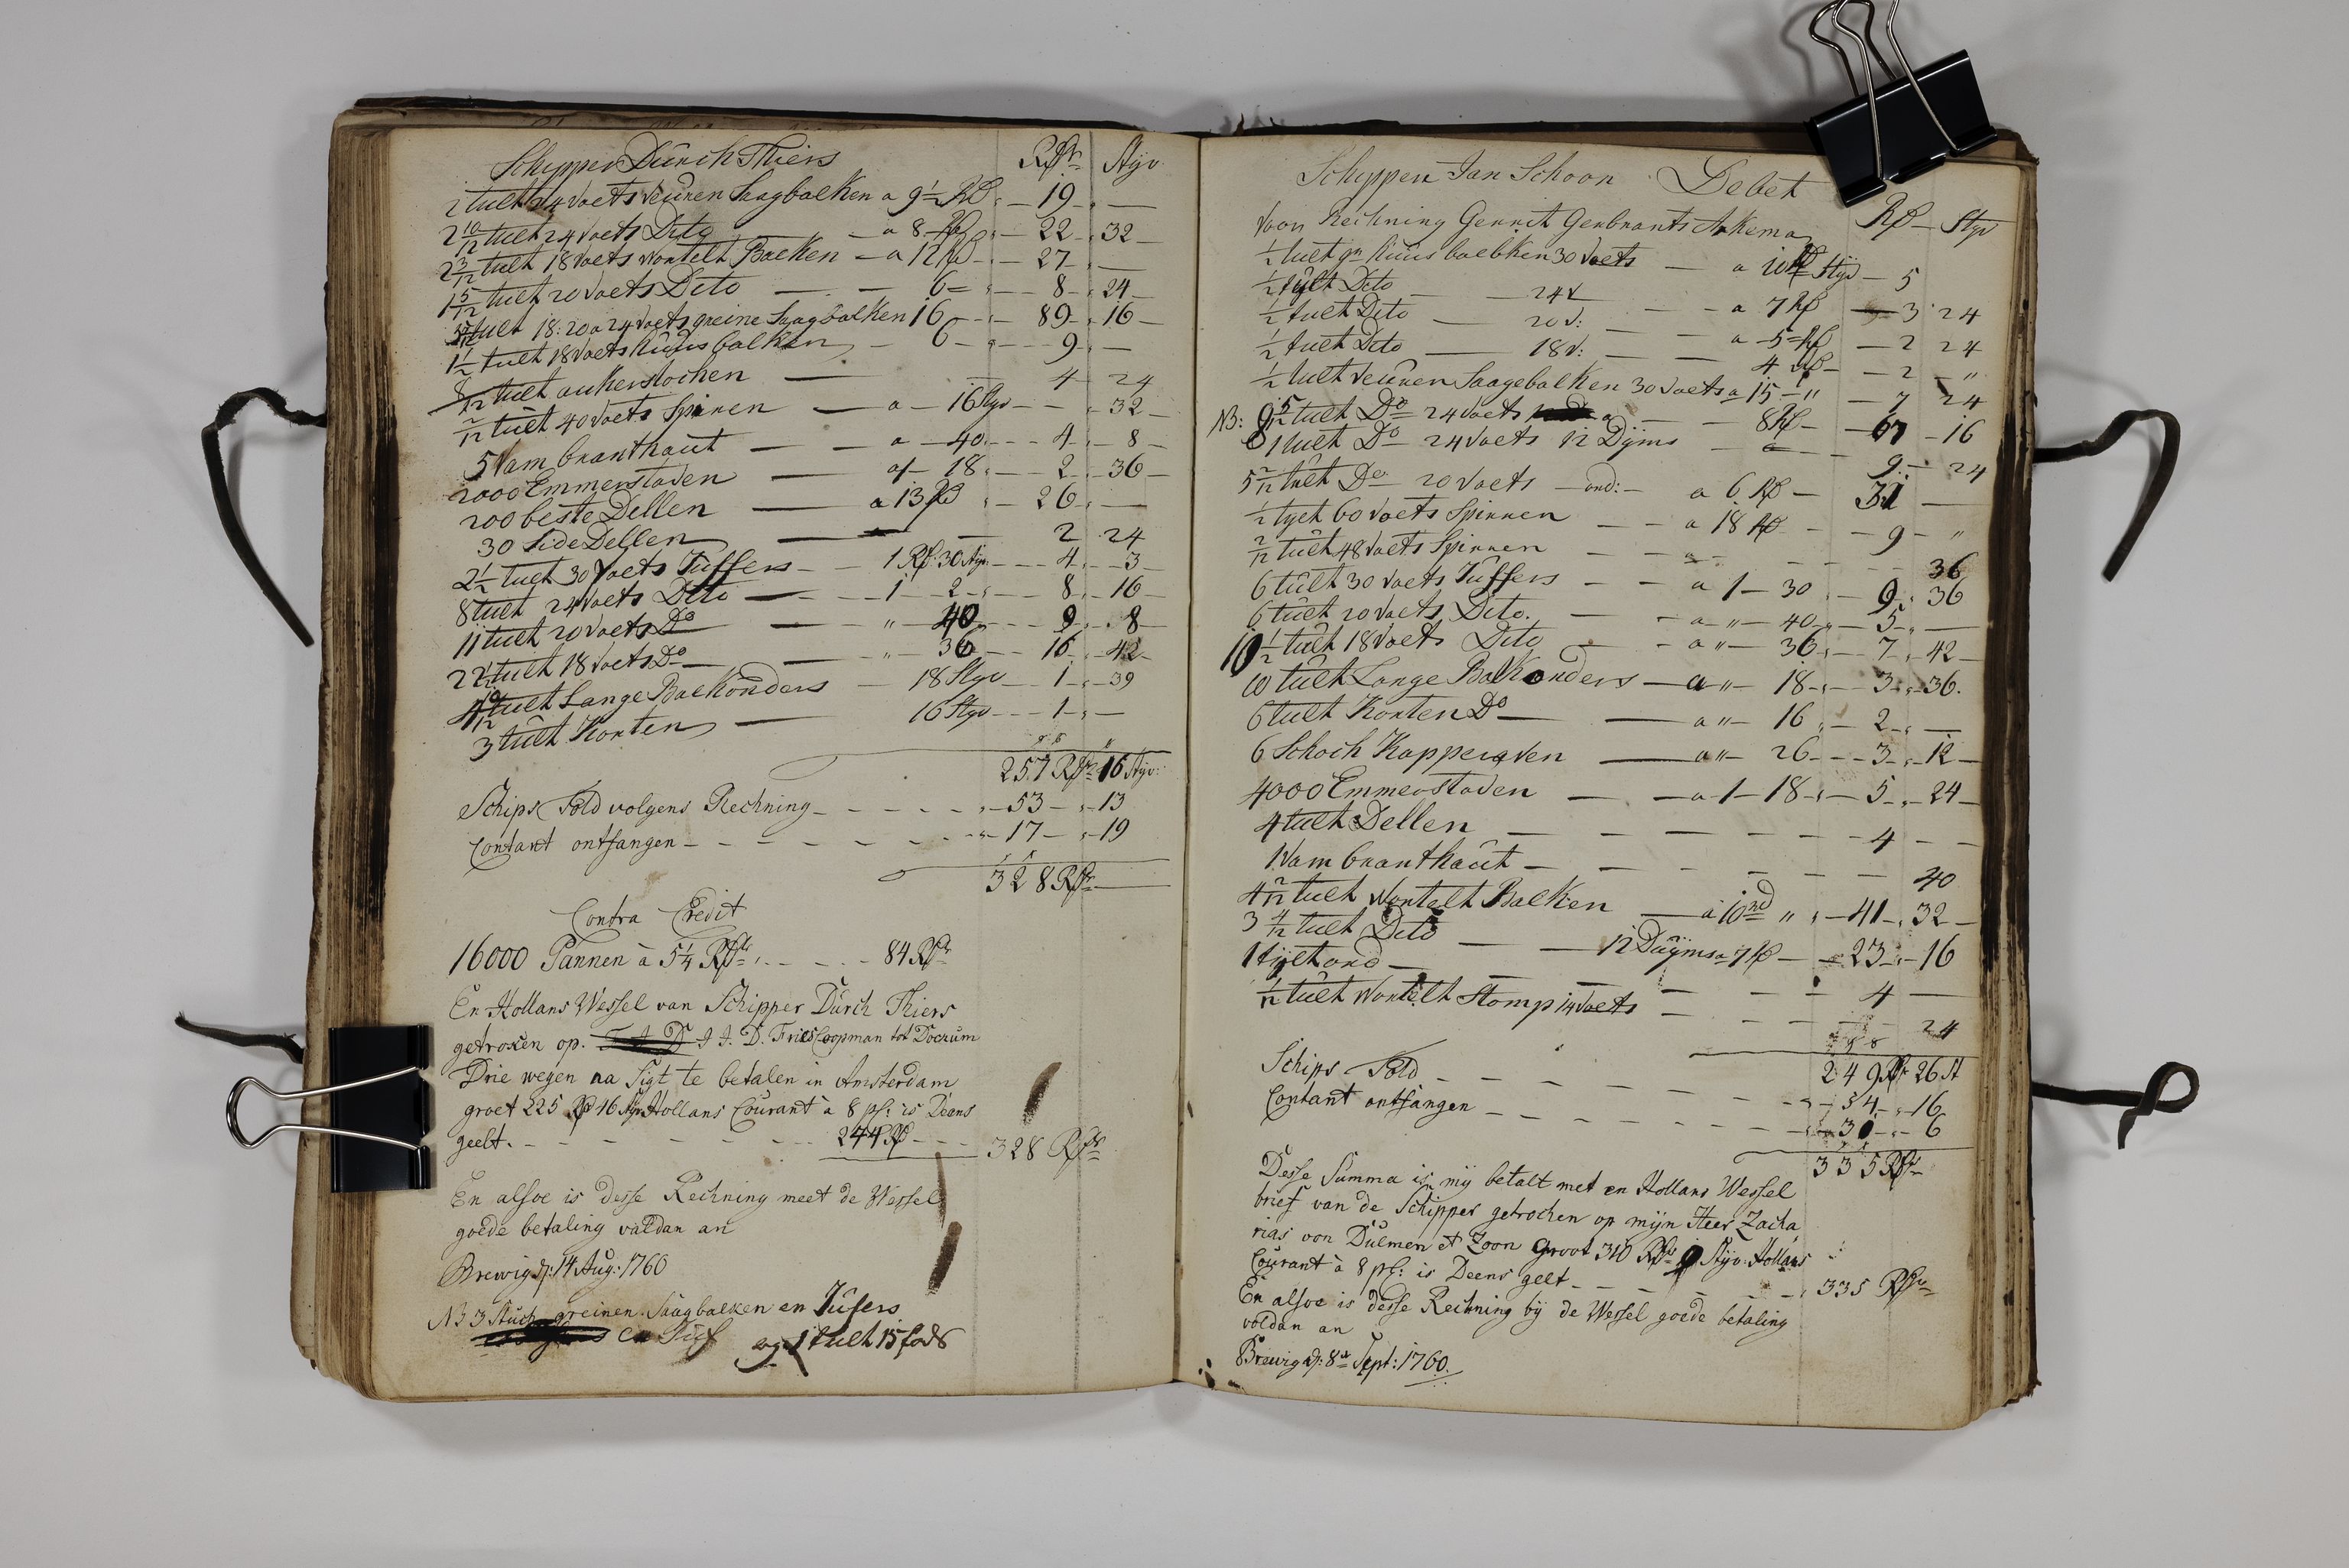 Schypper Dürich Thiers Rdr Styv
2 tuelt 24 voets veüren Saagbalken a 9½ Rd 19 —
2 10/12 tuelt 24 voets Dito — a 8 Rd 22 32
2 3/12 tuelt 18 voets wortelt Balken — a 12 Rd 27 —
1 5/12 tuelt 20 voets Dito — 6 = 8 24
tuelt 18: 20 a 24 voets greine Saagbalken 16 89 16
1½ tuelt 18 voets Küüsbalken — 6 9 —
8/12 tuelt ankerstochen — 4 24
2/12 tuelt 40 voets Spiren — a 16 Styv 32
5 Vam branthaüt — a 40 4 8
2000 Emmerstaven — af 18 2 36
200 beste Dellen — a 13 Rd 26 —
30 Side Dellen — 2 24
2½ tuelt 30 voets Tüffers — 1 Rd: 30 Styv 4 3
8 tuelt 24 voets Dito — 1 2 8 16
11 tuelt 20 voets Do — " 40 9 8
22½ tuelt 18 voets Do — " 36 16 42
4 10/12 tuelt Lange Balkonders — 18 Styv 1 39
3 tuelt Korten — 16 Styv 1 —
257 Rdr 16 Styv:
Schips Sold volgens Rechning — 53 13
Contant ontfangen — 17 19
328 Rdr
Contra Credit
16000 Pannen à 5¼ Rdr — 84 Rdr
En Hollans Wessel van Schipper Dürch Thiers
getroken op. J. D. Fries Coopman tot Dockum
Drie wegen na Sigt te betalen in Amsterdam
groet 225 Rd 16 Styv Hollans Courant à 8 pf: is Deans
geelt. — 244 Rd — 328 Rdr
En alsoe is desse Rechning meet de Wessel
goede betaling vāldan an
Brewig d: 14 Aug: 1760
NB 3 Stuch greinen Saagbalken en Tüfers
en 1 tuelt 15 fods
Schypper Jan Schoon Debet
Voor Rechning Gerrit Gerbrants Akema Rd — Styv
½ tuelt gr Küüs balken 30 voets — a 10 Rd Styv — 5
½ tÿlt Dito — 24 v — a 7 Rd — 3 24
½ tuelt Dito — 20 v: — a 5 Rd — 2 24
½ tuelt Dito — 18 v: — 4 Rd — 2 "
½ tuelt veüren Saagebalken 30 voets a 15 — " — 7 24
NB: 9 5/12 tuelt Do 24 voets a — 8 Rd — 67 16
1 tuelt Do 24 voets 12 Dÿms — 9 24
5 2/12 tuelt Do 20 voets — ond: — a 6 Rd — 31 —
½ tyet 60 voets Spirren — a 18 Rd — 9 "
2/12 tuelt 48 voets Spirren — 36
6 tuelt 30 voets Tüffers — a 1 — 30 9 36
6 tuelt 20 voets Dito. — a " — 40 5 —
10½ tuelt 18 voets Dito — a " — 36 7 42
10 tuelt Lange Balkonders — a " — 18 3 36.
6 tuelt Korten Do — a " — 16 2 —
6 Schoch Kapperaven — a " — 26 3 12
4000 Emmerstaven — a 1 — 18 5 24
4 tuelt Dellen — 4 —
1 Vam branthaüt — 40
4 2/12 tuelt Wortelt Balken — a 10 Rd " 41 32
3 4/12 tuelt Dito — 12 Düÿms a 7 Rd — 23 16
1 tÿlt ond — 4 —
1/12 tuelt wortelt Stomp 14 voets — 24
249 Rdr 26 St
Schips Sold — 54 16
Contant ontfangen — 31 6
335 Rdr
Desse Summa is mÿ betalt met en Hollans Wessel
brief van de Schipper getrochen op mijn Heer Zacha
rias von Dülmen et Zoon Groot 310 Rdr 9 Styv Hollans
Courant à 8 pf: is Deens gelt — 335 Rdr
En alsoe is desse Rechning bÿ de Wessel goede betaling
voldan an
Brewig d: 8st Sept: 1760.